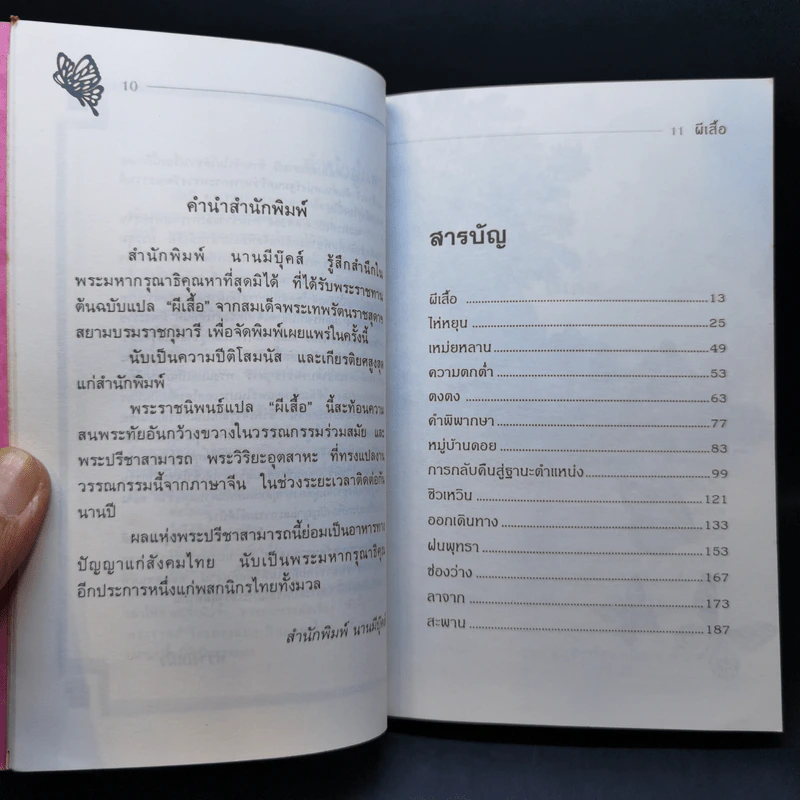 10
คำนำสำนักพิมพ์
สำนักพิมพ์ นานมีบุ๊คส์ รู้สึกสำนึกใน
พระมหากรุณาธิคุณหาที่สุดมิได้ ที่ได้รับพระราชทาน
ต้นฉบับแปล “ผีเสื้อ” จากสมเด็จพระเทพรัตนราชสุดาฯ
สยามบรมราชกุมารี เพื่อจัดพิมพ์เผยแพร่ในครั้งนี้
นับเป็นความปีติโสมนัส และเกียรติยศสูงสุด
แก่สำนักพิมพ์
พระราชนิพนธ์แปล “ผีเสื้อ” นี้สะท้อนความ
สนพระทัยอันกว้างขวางในวรรณกรรมร่วมสมัย และ
พระปรีชาสามารถ พระวิริยะอุตสาหะ ที่ทรงแปลงาน
วรรณกรรมนี้จากภาษาจีน ในช่วงระยะเวลาติดต่อกัน
นานปี
ผลแห่งพระปรีชาสามารถนี้ย่อมเป็นอาหารทาง
ปัญญาแก่สังคมไทย นับเป็นพระมหากรุณาธิคุณ
อีกประการหนึ่งแก่พสกนิกรไทยทั้งมวล
สำนักพิมพ์ นานมีบุ๊คส์
11 ผีเสื้อ
สารบัญ
ผีเสื้อ 13
ไห่หยุน 25
เหม่ยหลาน 49
ความตกต่ำ 53
ตงตง 63
คำพิพากษา 77
หมู่บ้านดอย 83
การกลับคืนสู่ฐานะตำแหน่ง 99
ชิวเหวิน 121
ออกเดินทาง 133
ฝนพุทรา 153
ช่องว่าง 167
ลาจาก 173
สะพาน 187